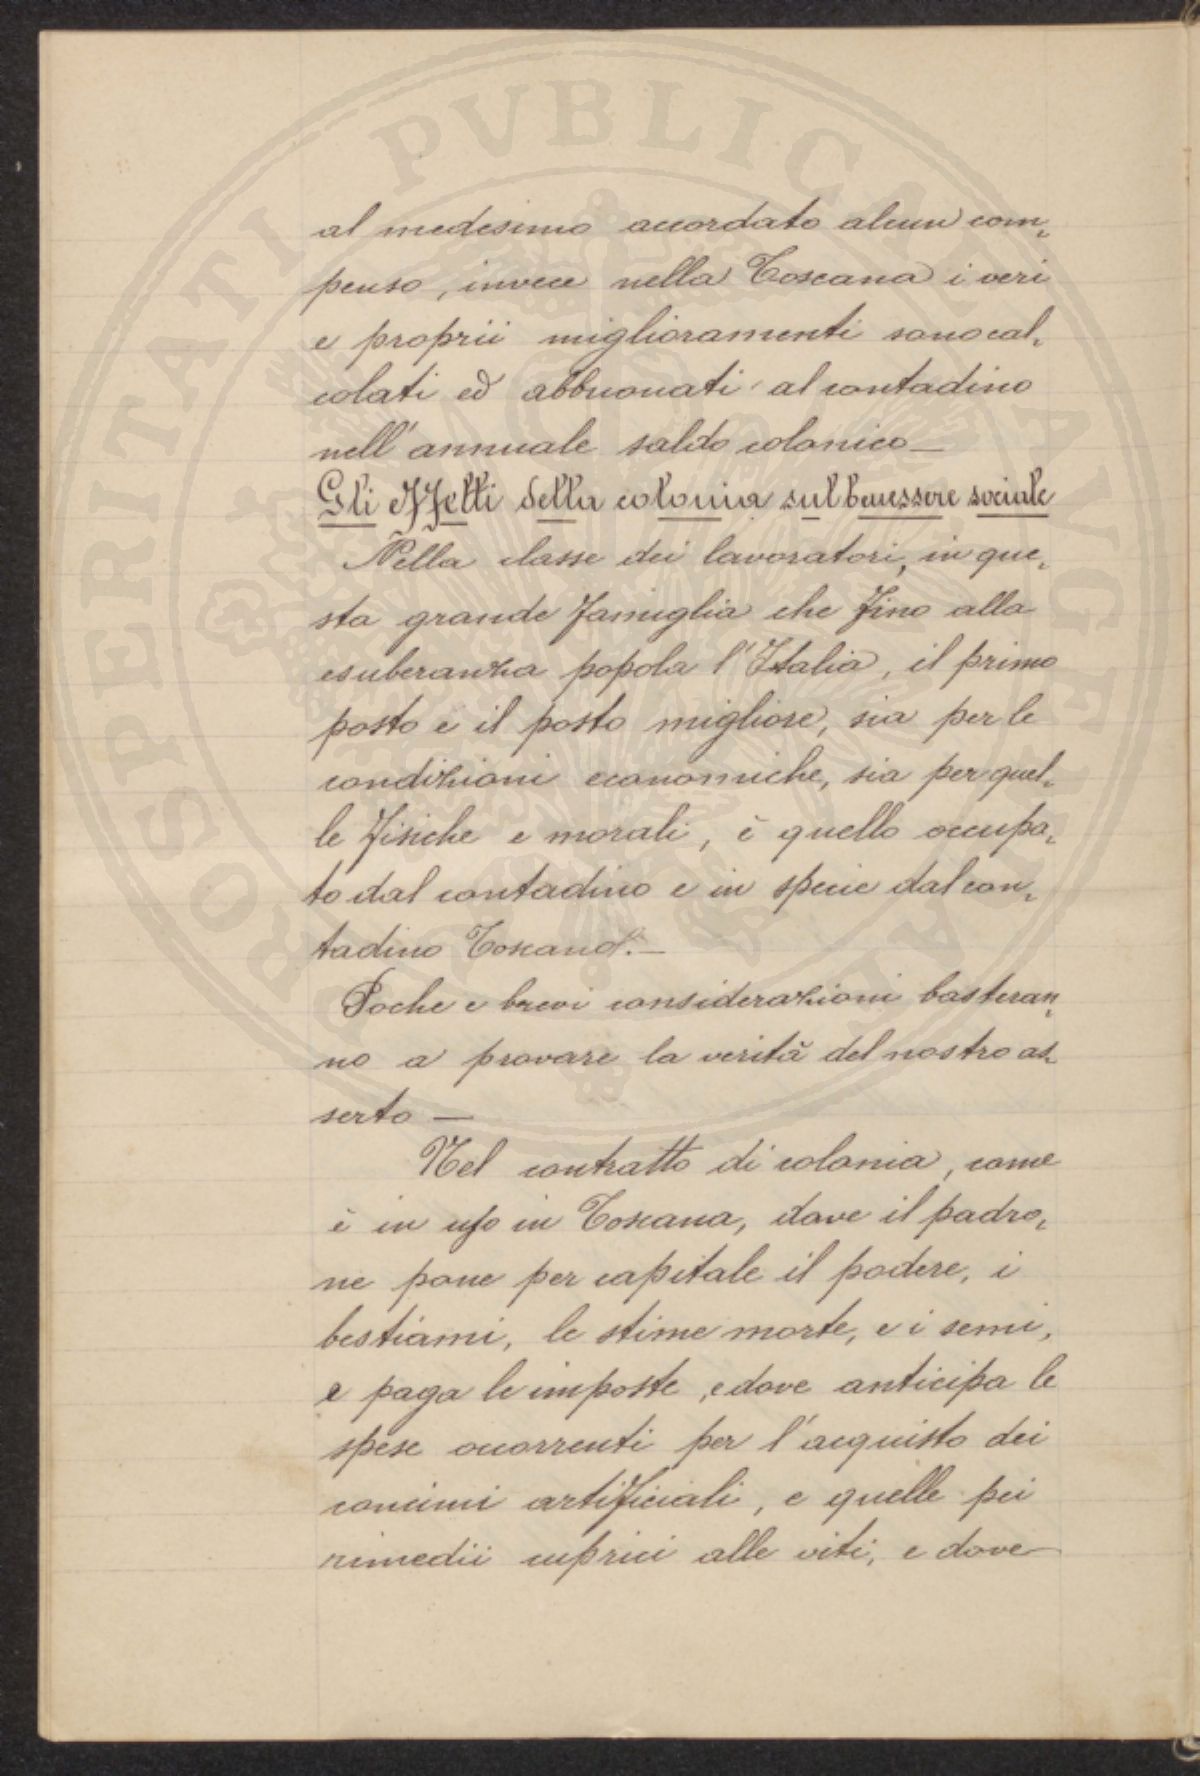 al medesimo accordato alcun com-
penso, invece nella Toscana i veri
e proprii miglioramenti sono cal-
colati ed abbuonati al contadino
nell'annuale saldo colonico —
Gli effetti della colonia sul benessere sociale
Nella classe dei lavoratori, in que-
sta grande famiglia che fino alla
esuberanza popola l'Italia, il primo
posto e il posto migliore, sia per le
condizioni economiche, sia per quel-
le fisiche e morali, è quello occupa-
to dal contadino e in specie dal con-
tadino Toscano. —
Poche e brevi considerazioni basteran-
no a provare la verità del nostro as-
serto —
Nel contratto di colonia, come
è in uso in Toscana, dove il padro-
ne pone per capitale il podere, i
bestiami, le stime morte, e i semi,
e paga le imposte, e dove anticipa le
spese occorrenti per l'acquisto dei
concimi artificiali, e quelle pei
rimedii cuprici alle viti, e dove
PROSPERITATI PVBLICAE AVGENDAE